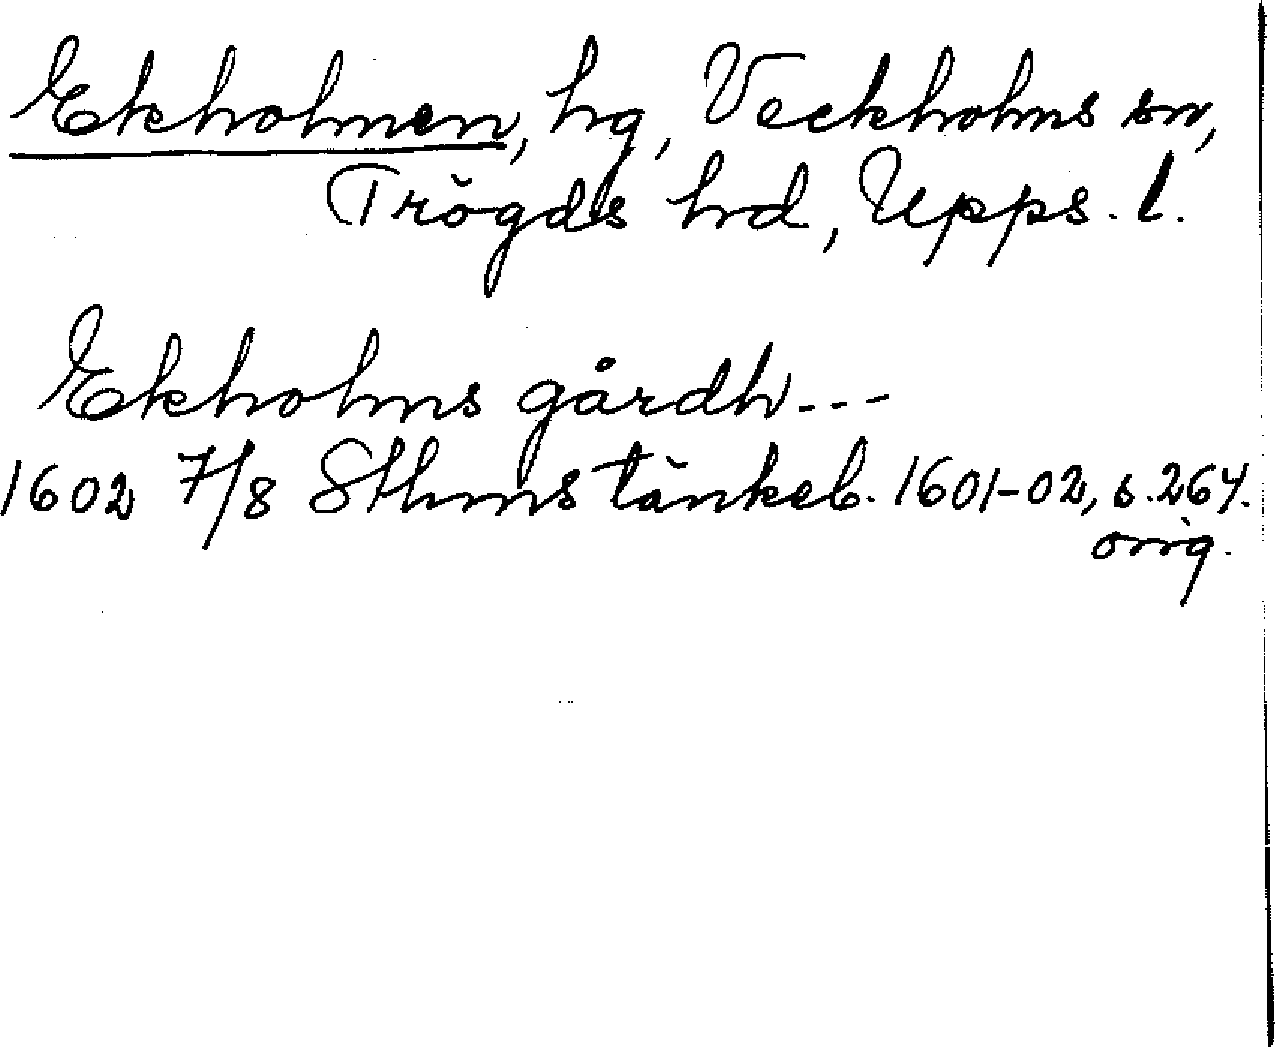 Ekholmen, hg, Veckholms sn,
Trögds hd, Upps. l.
Ekholms gårdh---
1602 7/8 Sthms tänkeb. 1601-02, s. 264.
orig.